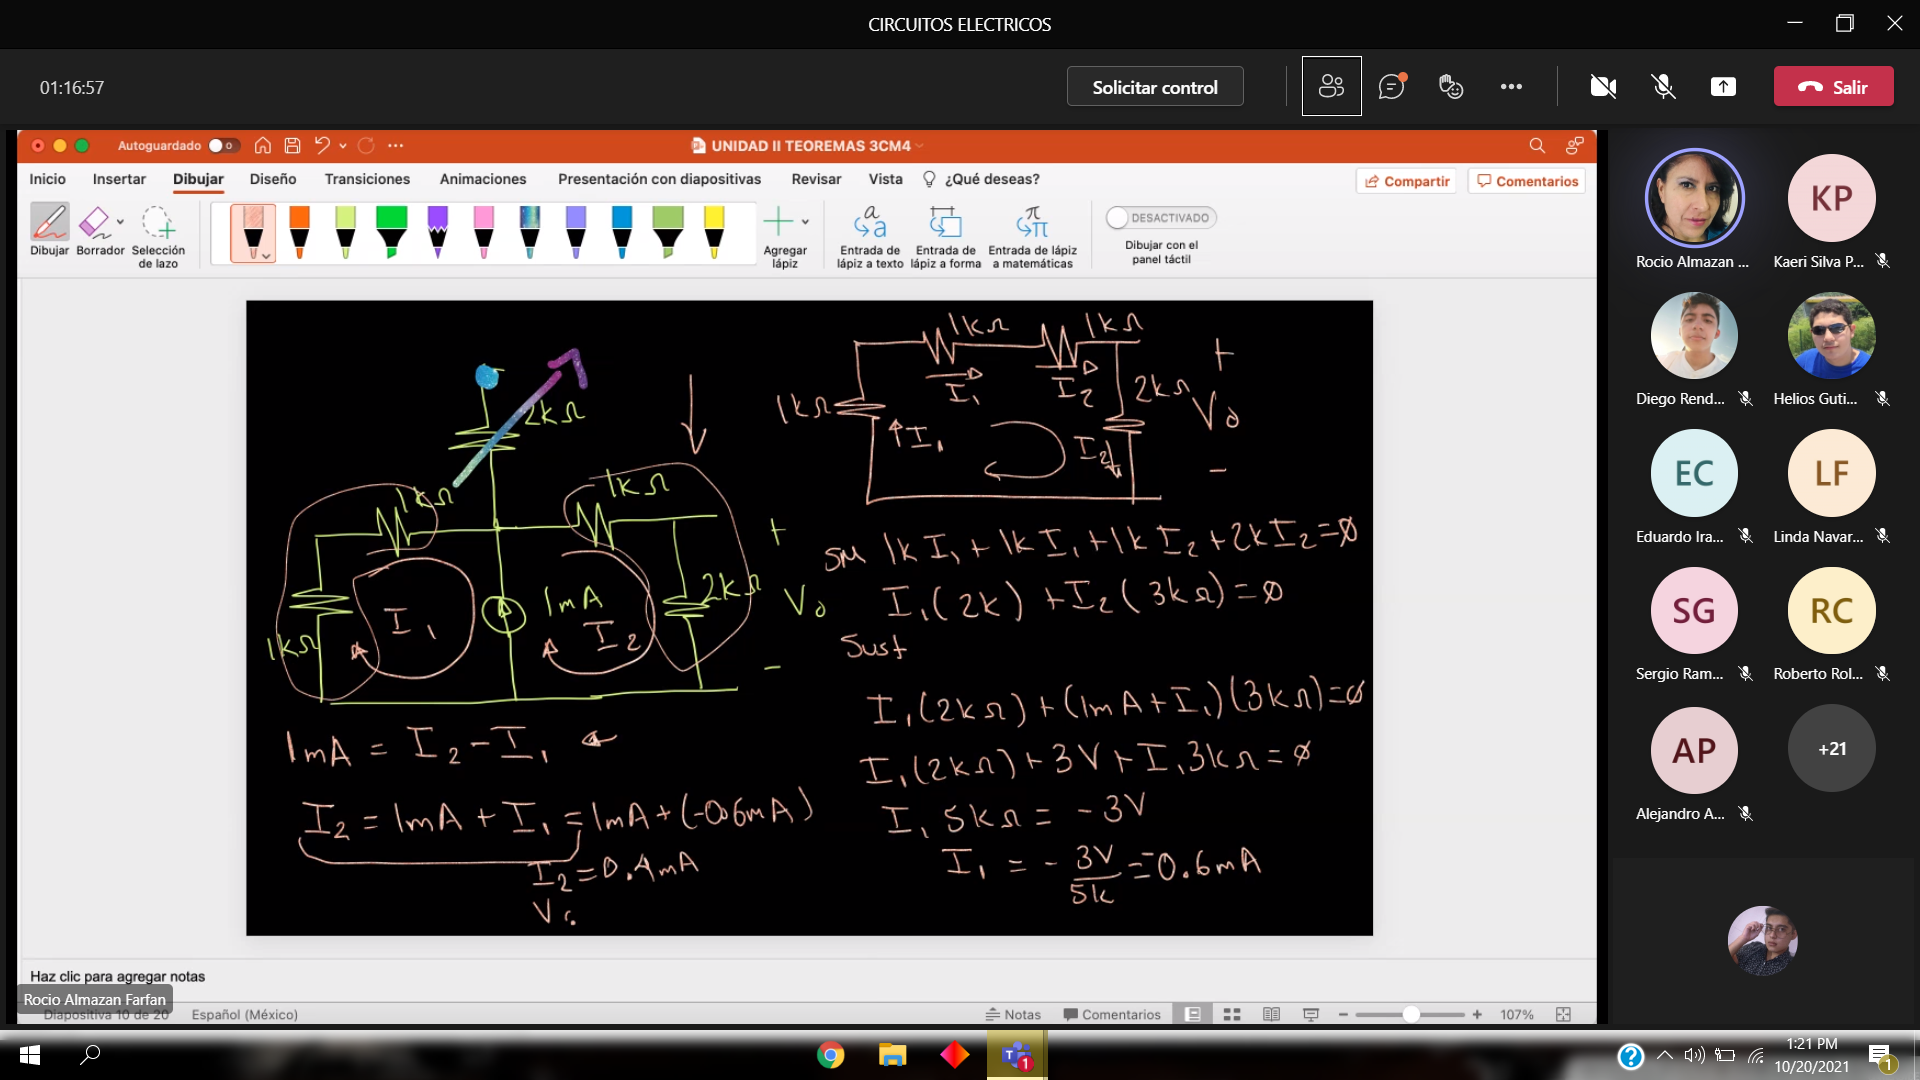 CIRCUITOS ELECTRICOS
01:16:57
Solicitar control
Salir
Autoguardado
UNIDAD II TEOREMAS 3CM4
Inicio Insertar Dibujar Diseño Transiciones Animaciones Presentación con diapositivas Revisar Vista ¿Qué deseas?
Compartir Comentarios
Dibujar Borrador Selección de lazo
Agregar lápiz
Entrada de lápiz a texto
Entrada de lápiz a forma
Entrada de lápiz a matemáticas
DESACTIVADO
Dibujar con el panel táctil
2kΩ
1kΩ
1kΩ
1kΩ
I₁
1mA
I₂
2kΩ
+
V₀
-
1mA = I₂ - I₁
I₂ = 1mA + I₁ = 1mA + (-0.6mA)
I₂ = 0.4mA
V₀
1kΩ 1kΩ
I₁ I₂
1kΩ
I₁
I₂
2kΩ
+
V₀
-
SM 1k I₁ + 1k I₁ + 1k I₂ + 2k I₂ = ∅
I₁(2k) + I₂(3kΩ) = ∅
Sust
I₁(2kΩ) + (1mA + I₁)(3kΩ) = ∅
I₁(2kΩ) + 3V + I₁3kΩ = ∅
I₁ 5kΩ = -3V
I₁ = - 3V/5k = -0.6mA
Haz clic para agregar notas
Rocio Almazan Farfan
Diapositiva 10 de 20 Español (México)
Notas Comentarios 107%
Rocio Almazan ...
KP
Kaeri Silva P...
Diego Rend...
Helios Guti...
EC
Eduardo Ira...
LF
Linda Navar...
SG
Sergio Ram...
RC
Roberto Rol...
AP
Alejandro A...
+21
1:21 PM
10/20/2021
1
1